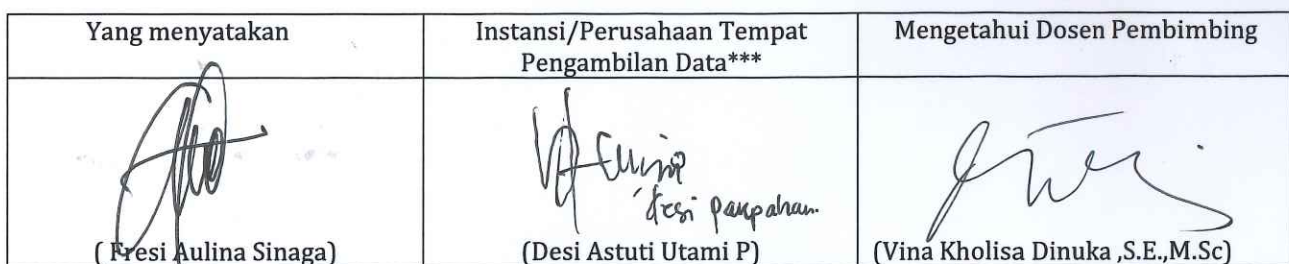 Yang menyatakan
Instansi/Perusahaan Tempat
Pengambilan Data***
Mengetahui Dosen Pembimbing
Desi
( Fresi Aulina Sinaga)
(Desi Astuti Utami P)
(Vina Kholisa Dinuka ,S.E.,M.Sc)